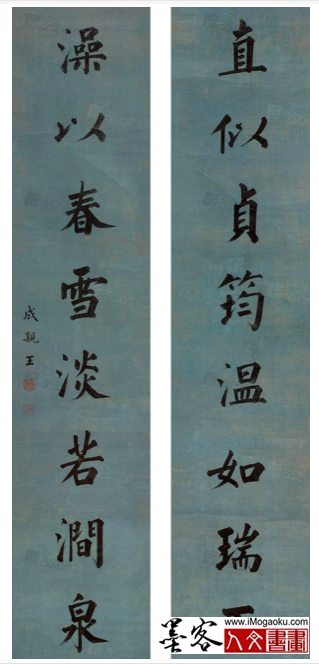 直似貞筠温如瑞
澡以春雪淡若澗泉
成親王
www.iMogaoku.com
墨客人文書畫